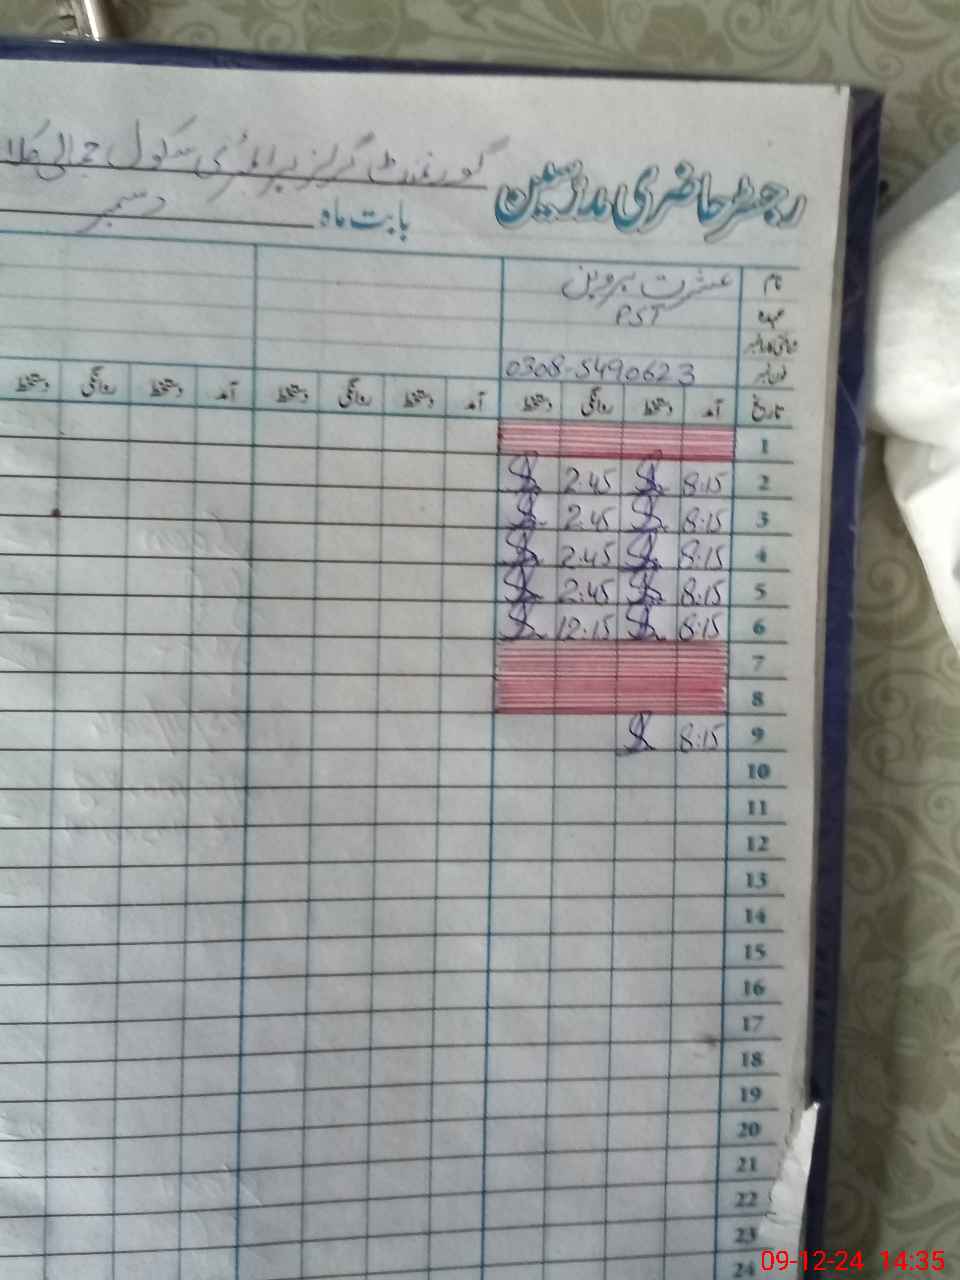 رجسٹر حاضری مدرسین گورنمنٹ گرلز پرائمری سکول جمالی
بابت ماہ دسمبر
نام عشرت پروین
عہدہ PST
فون نمبر 0308-5490623
تاریخ آمد دستخط روانگی دستخط آمد دستخط روانگی دستخط آمد دستخط روانگی دستخط
1
2 8:15 2:45
3 8:15 2:45
4 8:15 2:45
5 8:15 2:45
6 8:15 12:15
7
8
9 8:15
10
11
12
13
14
15
16
17
18
19
20
21
22
23
24
09-12-24 14:35